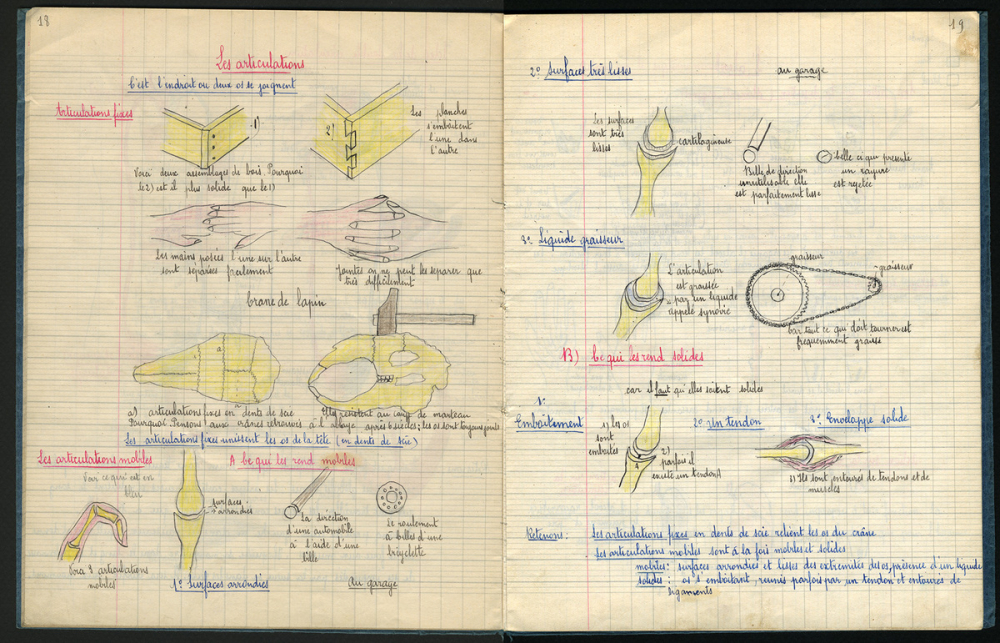 18
Les articulations
C'est l'endroit ou deux os se joignent
Articulations fixes
1)
2)
Les planches
s'emboîtent
l'une dans
l'autre
Voici deux assemblages de bois. Pourquoi
le 2) est il plus solide que le 1)
Les mains posées l'une sur l'autre
sont séparées facilement
Jointes on ne peut les séparer que
très difficilement
Crane de lapin
a
a
a) articulations fixes en dents de scie
Pourquoi Pensons aux crânes retrouvés à l'abbaye
Elles résistent au coup de marteau
après 6 siècles; les os sont toujours joints
Les articulations fixes unissent les os de la tête (en dents de scie)
Les articulations mobiles
A Ce qui les rend mobiles
Voir ce qui est en
bleu
Voici 3 articulations
mobiles
surfaces
arrondies
1º Surfaces arrondies
La direction
d'une automobile
à l'aide d'une
bille
Le roulement
à billes d'une
bicyclette
Au garage
19
2º Surfaces très lisses
au garage
Les surfaces
sont très
lisses
cartilagineuse
Bille de direction
inutilisable elle
est parfaitement lisse
celle ci qui présente
un rayure
est rejetée
3º Liquide graisseur
L'articulation
est graissée
par un liquide
appelé synovie
graisseur
graisseur
Car tout ce qui doit tourner est
fréquemment graissé
B) Ce qui les rend solides
car il faut qu'elles soient solides
1º
Emboîtement
2º un tendon
3º Enveloppe solide
1) les os
sont
emboités
2)
parfois il
existe un tendon
3) Ils sont entourés de tendons et de
muscles
Retenons :
Les articulations fixes en dents de scie relient les os du crâne
Les articulations mobiles sont à la fois mobiles et solides
mobiles : surfaces arrondies et lisses des extrémités des os, présence d'un liquide
solides : os s'emboitant, reunis parfois par un tendon et entourés de
ligaments